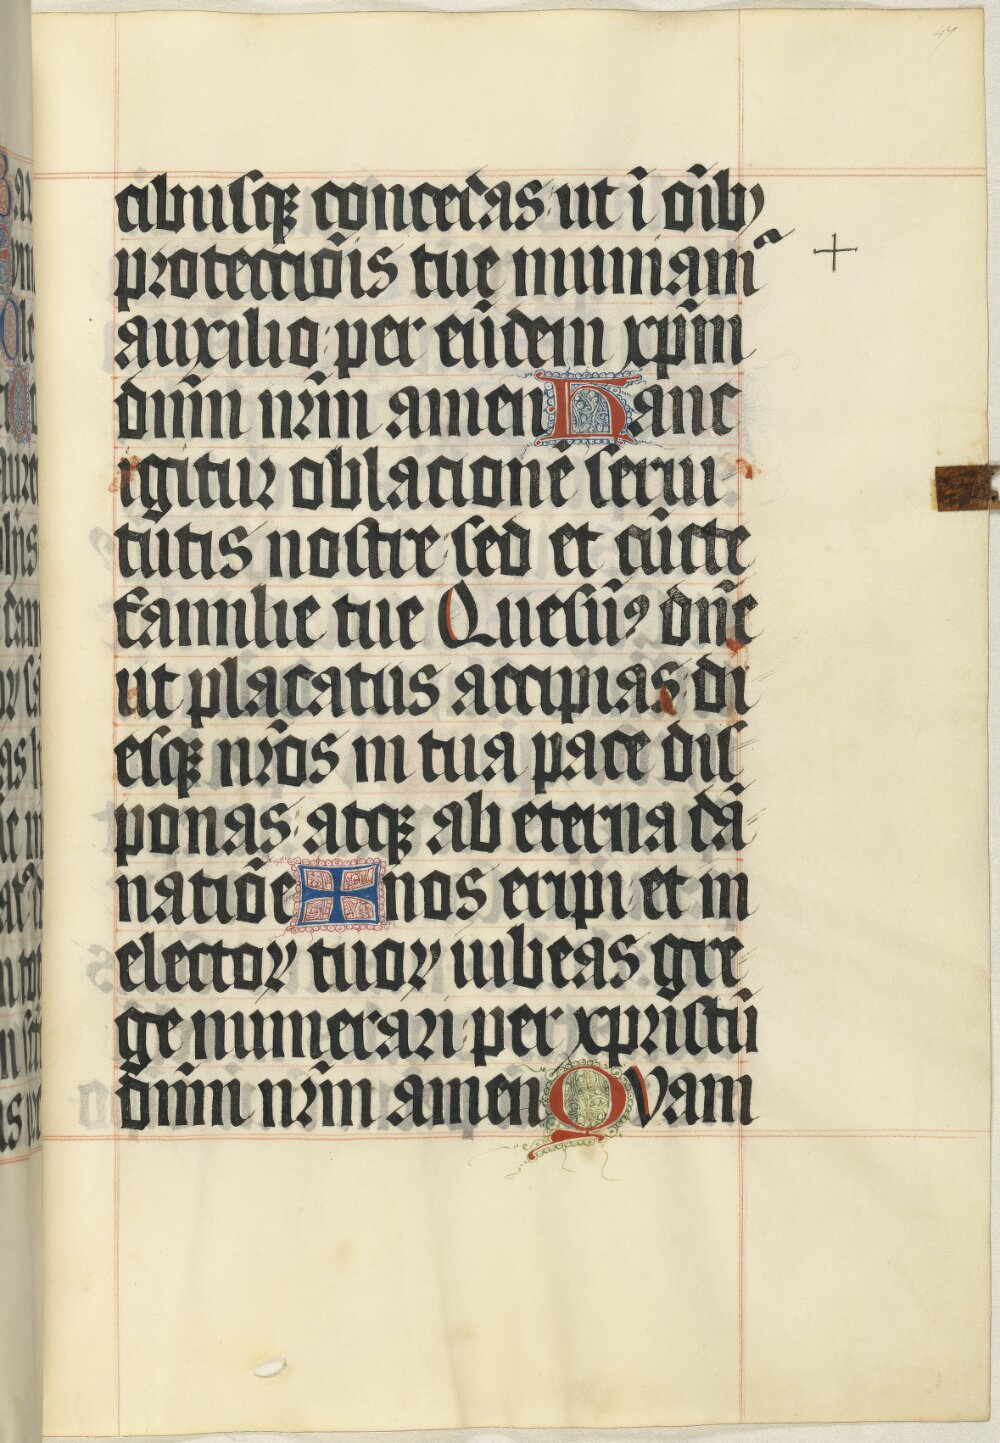 cibusq3 concedas ut ī oīb9
proteccōis tuę muniamᷣ
auxilio per eūdem xp̄m
dnm̄ nr̄m amen Hanc
igitur oblacionē serui
tutis nostre sed et cūcte
familie tue Quesum9 dn̄e
ut placatus accipias di
esq3 nr̄os in tua pace dis
ponas atq3 ab eterna dā
natiōe ✠ nos eripi et in
electoꝝ tuoꝝ iubeas gre
ge numerari per xpristū
dnm̄ nr̄m amen QVam